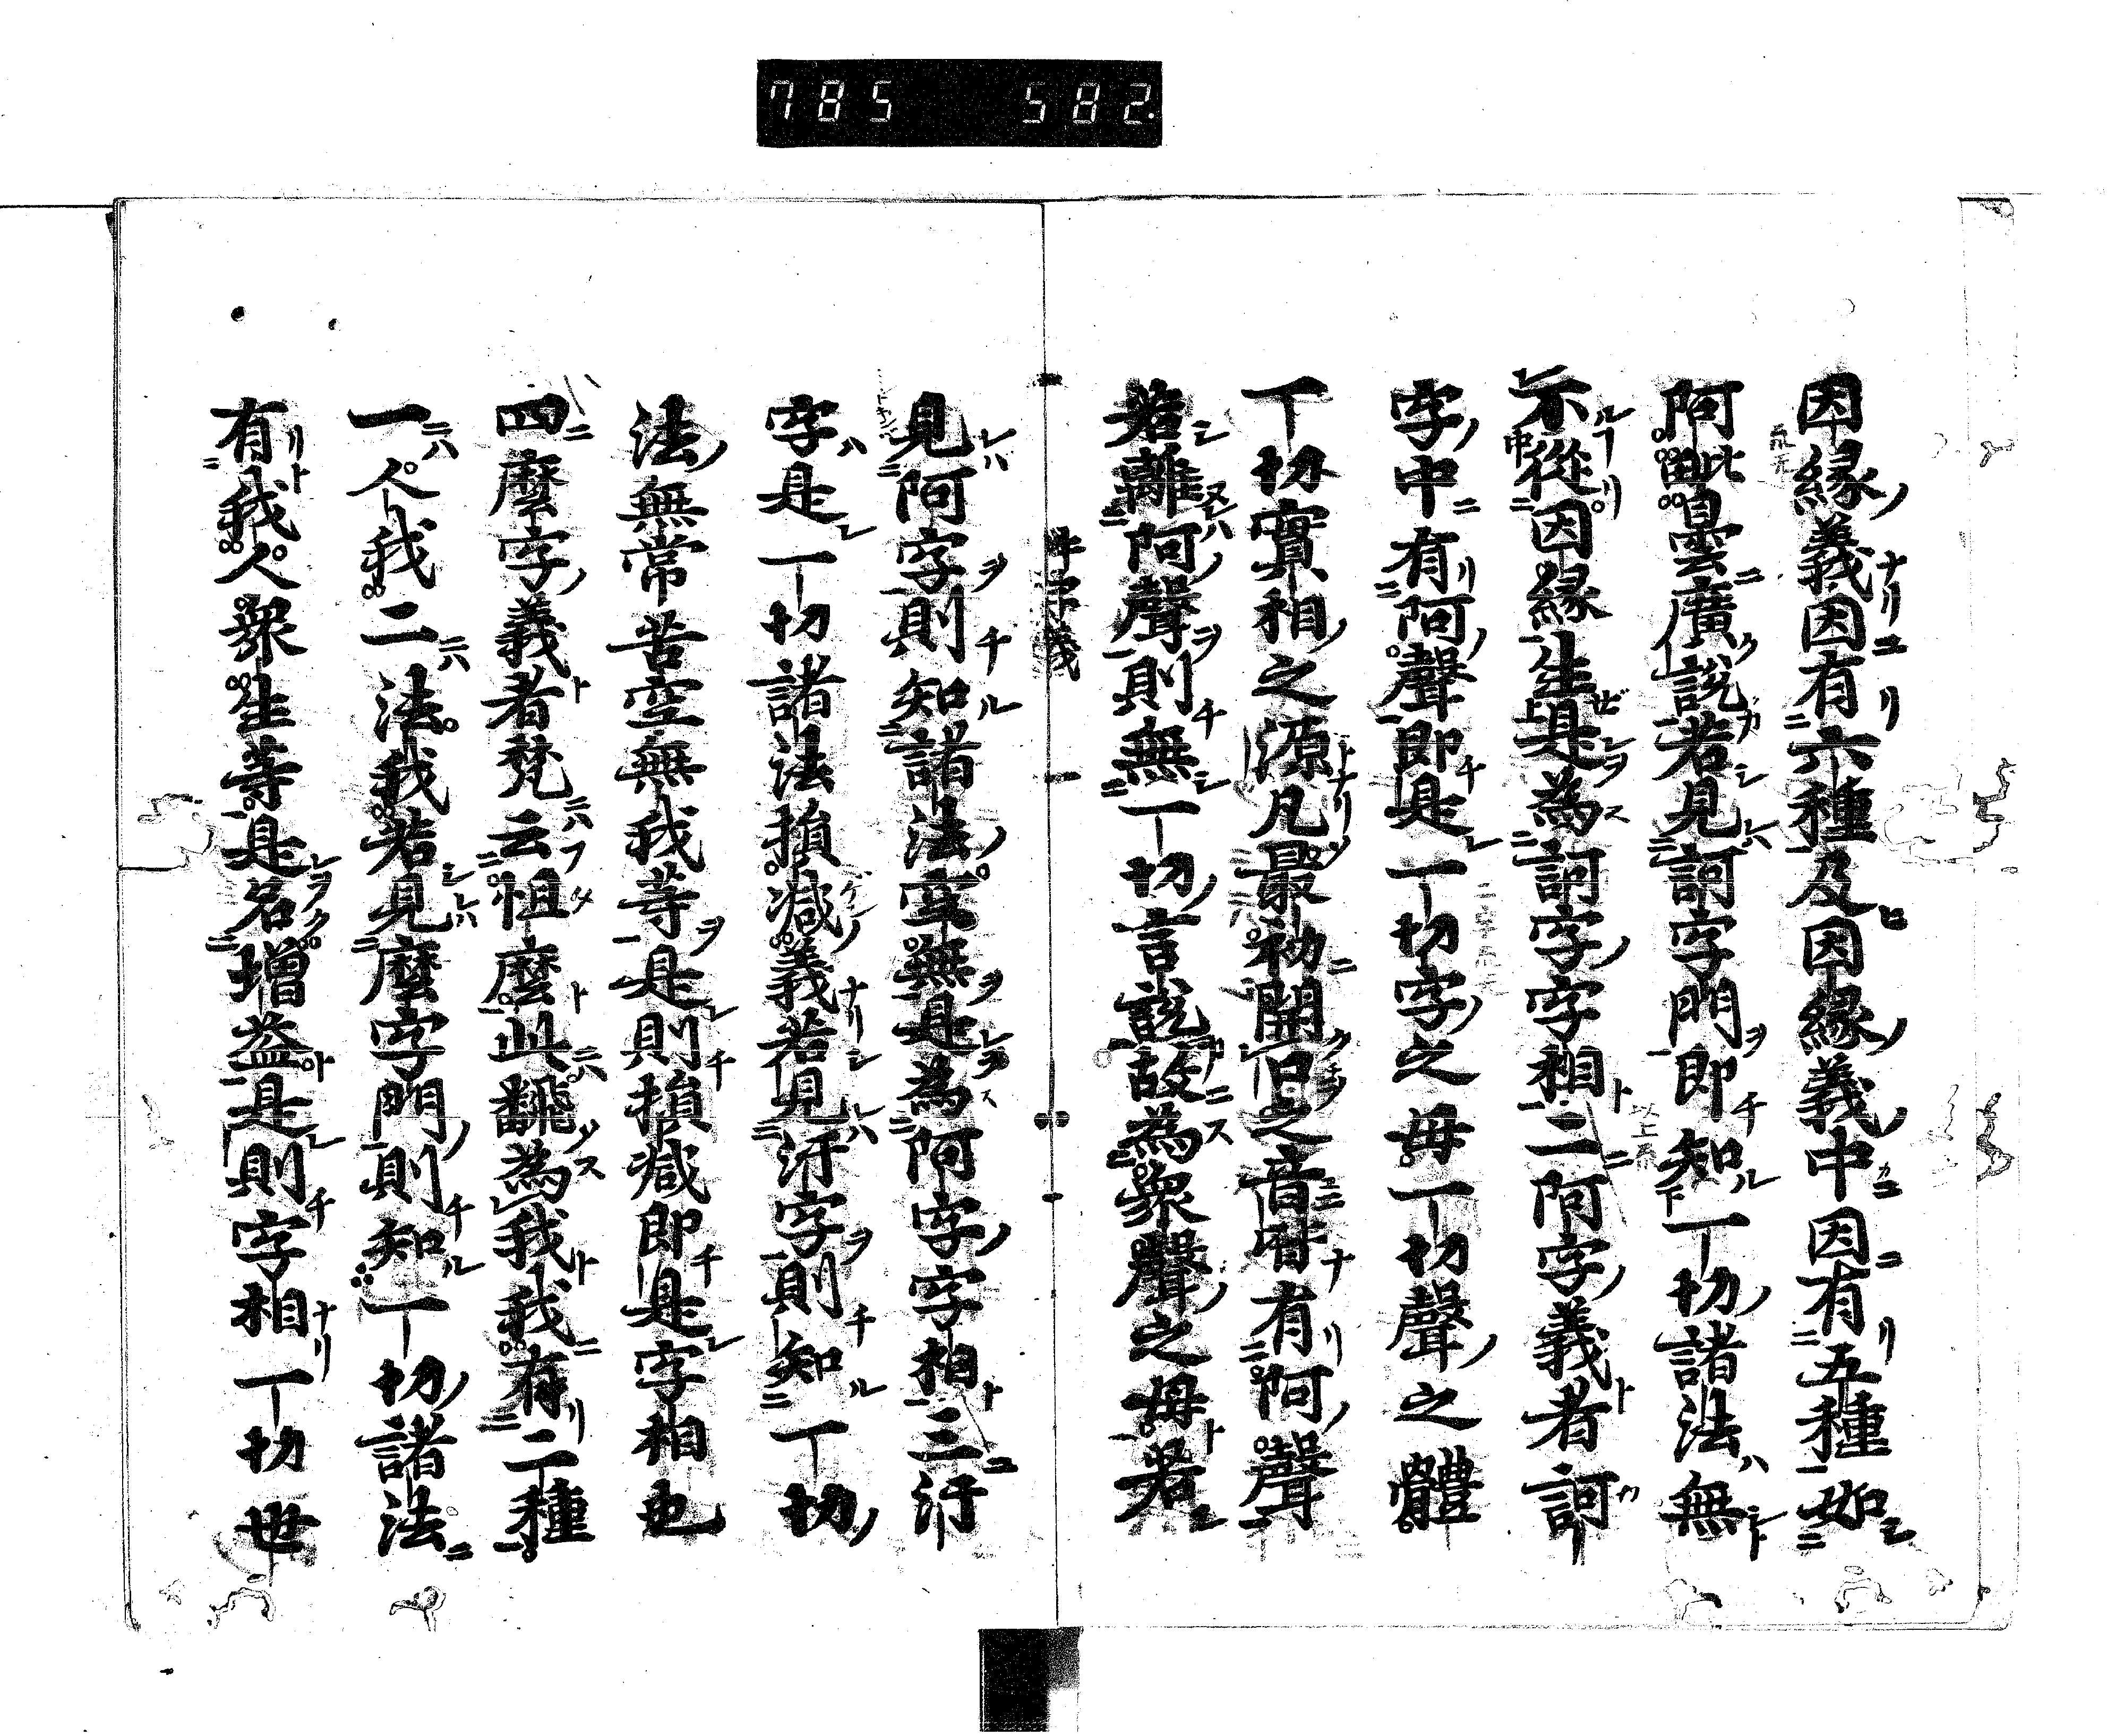 785 582
因縁義因有六種及因縁義中因有五種如
阿毘曇廣説若見訶字門即知一切諸法無
不從因縁生是為訶字字相二阿字義者訶
字中有阿聲即是一切字之母一切聲之體
一切實相之源凡最初開口之音皆有阿聲
若離阿聲則無一切言説故為衆聲之母若
吽字義
見阿字則知諸法空無是為阿字字相三汙
字是一切諸法損減義若見汙字則知一切
法無常苦空無我等是則損減即是字相也
四麼字義者梵云怛麼此翻為我我有二種
一人我二法我若見麼字門則知一切諸法
有我人衆生等是名增益是則字相一切世